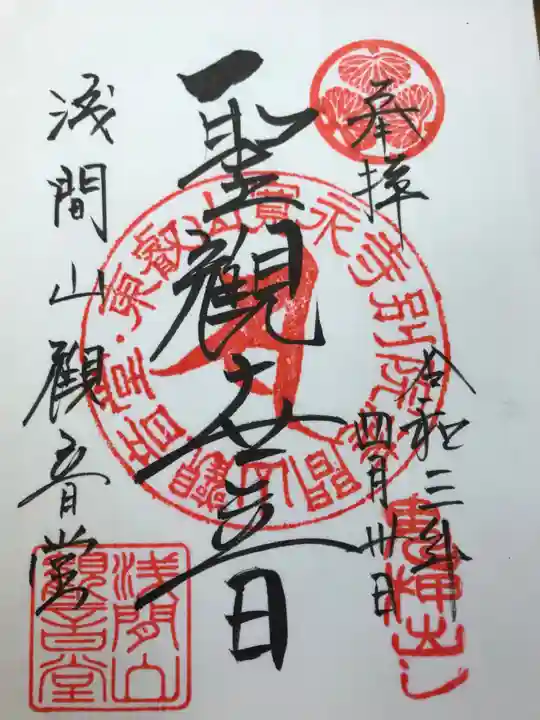 奉拝
令和三年
四月卅日
聖観世音
浅間山観音堂
東叡山寛永寺別院浅間山観音堂
浅間山
観音堂